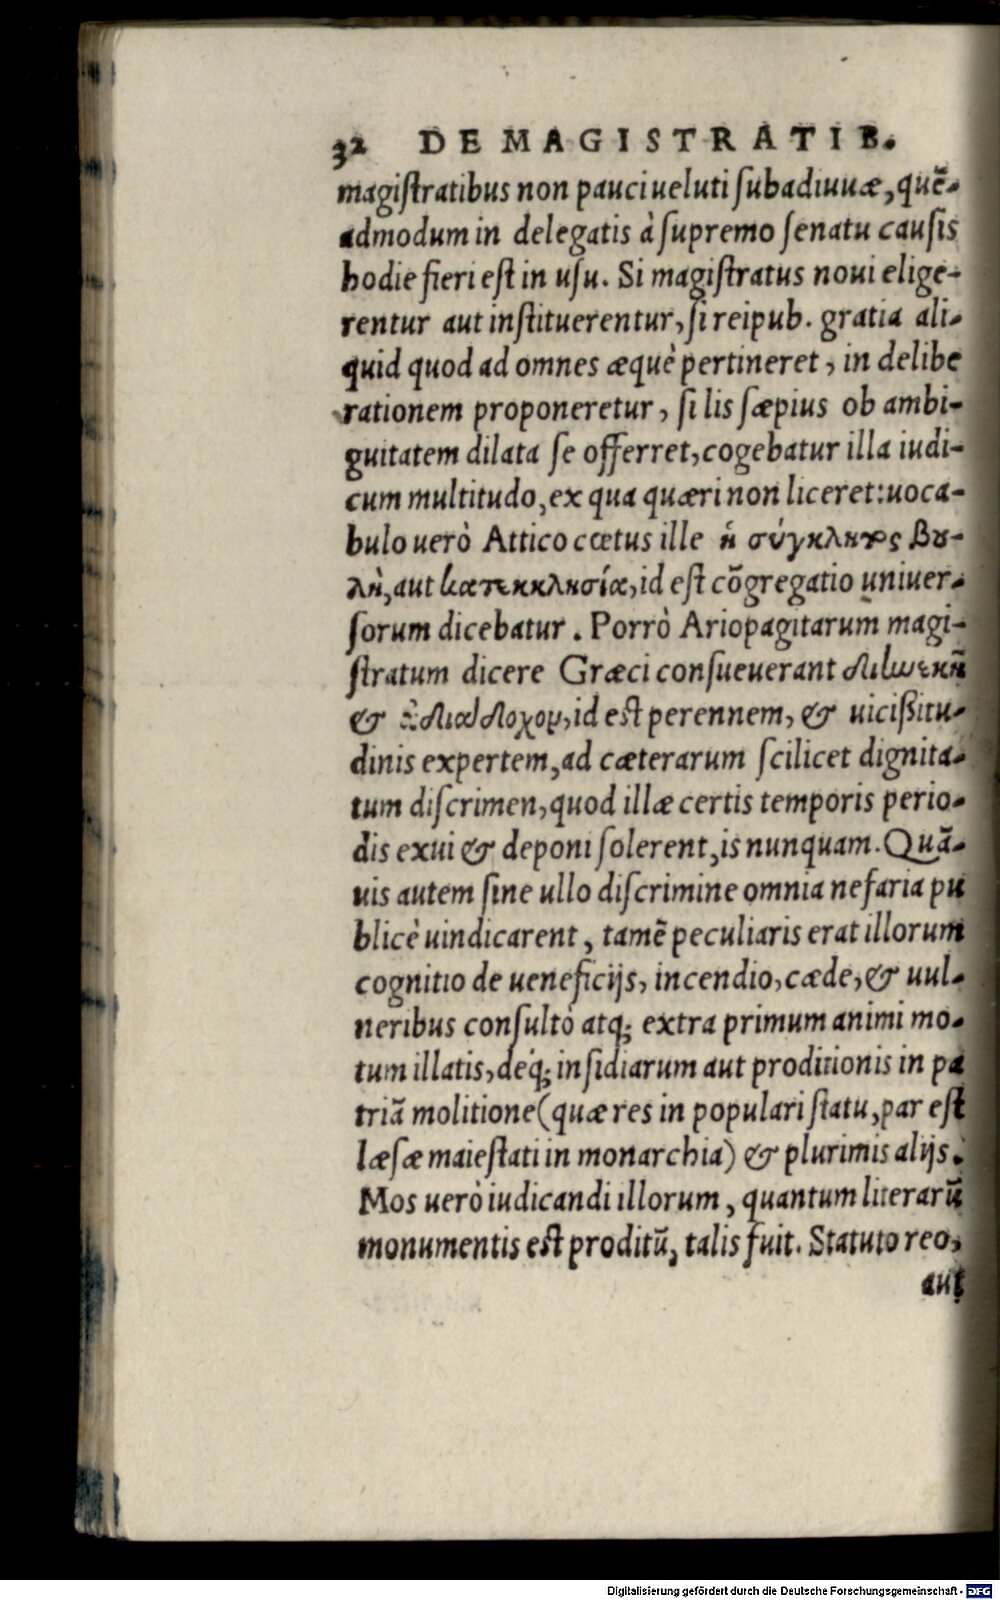 32 DE MAGISTRATIB.
magiſtratibus non pauci ueluti ſubadiuuæ, quẽ-
admodum in delegatis à ſupremo ſenatu cauſis
hodie fieri eſt in uſu. Si magiſtratus noui elige-
rentur aut inſtituerentur, ſi reipub. gratia ali-
quid quod ad omnes æquè pertineret, in delibe
rationem proponeretur, ſi lis ſæpius ob ambi-
guitatem dilata ſe offerret, cogebatur illa iudi-
cum multitudo, ex qua quæri non liceret: uoca-
bulo uerò Attico cœtus ille ἡ σύγκλητος βου-
λὴ, aut κατεκκλησία, id eſt cõgregatio uniuer-
ſorum dicebatur. Porrò Ariopagitarum magi-
ſtratum dicere Græci conſueuerant
& id eſt perennem, & uicißitu-
dinis expertem, ad cæterarum ſcilicet dignita-
tum diſcrimen, quod illæ certis temporis perio-
dis exui & deponi ſolerent, is nunquam. Quã-
uis autem ſine ullo diſcrimine omnia nefaria pu
blicè uindicarent, tamẽ peculiaris erat illorum
cognitio de ueneficijs, incendio, cæde, & uul-
neribus conſultò atq; extra primum animi mo-
tum illatis, deq́; inſidiarum aut proditionis in pa
triã molitione (quæ res in populari ſtatu, par eſt
læſæ maieſtati in monarchia) & plurimis alijs.
Mos uerò iudicandi illorum, quantum literarũ
monumentis eſt proditũ, talis fuit. Statuto reo,
aut
Digitalisierung gefördert durch die Deutsche Forschungsgemeinschaft - DFG